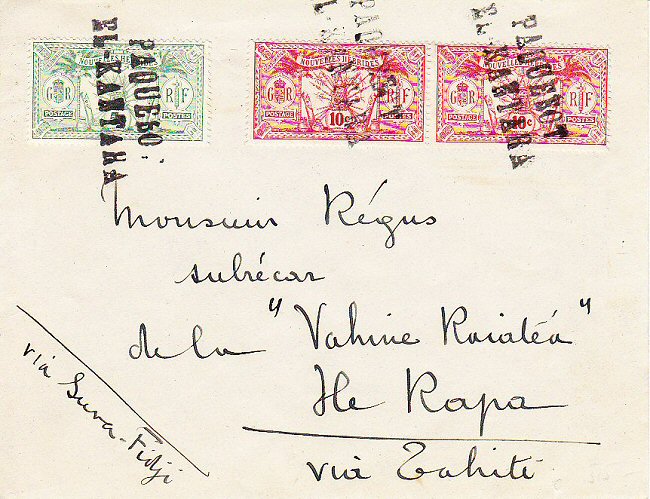 NOUVELLES HEBRIDES
G R
R F
POSTAGE
POSTES
PAQUEBOT
EL-KANTARA
NOUVELLES HEBRIDES
G R
R F
POSTAGE
10c
POSTES
PAQUEBOT
EL-KANTARA
NOUVELLES HEBRIDES
G R
R F
POSTAGE
10c
POSTES
PAQUEBOT
EL-KANTARA
Monsieur Régus
subrécar
de la "Vahine Raiatéa"
Ile Rapa
via Tahiti
via Suva-Fidji